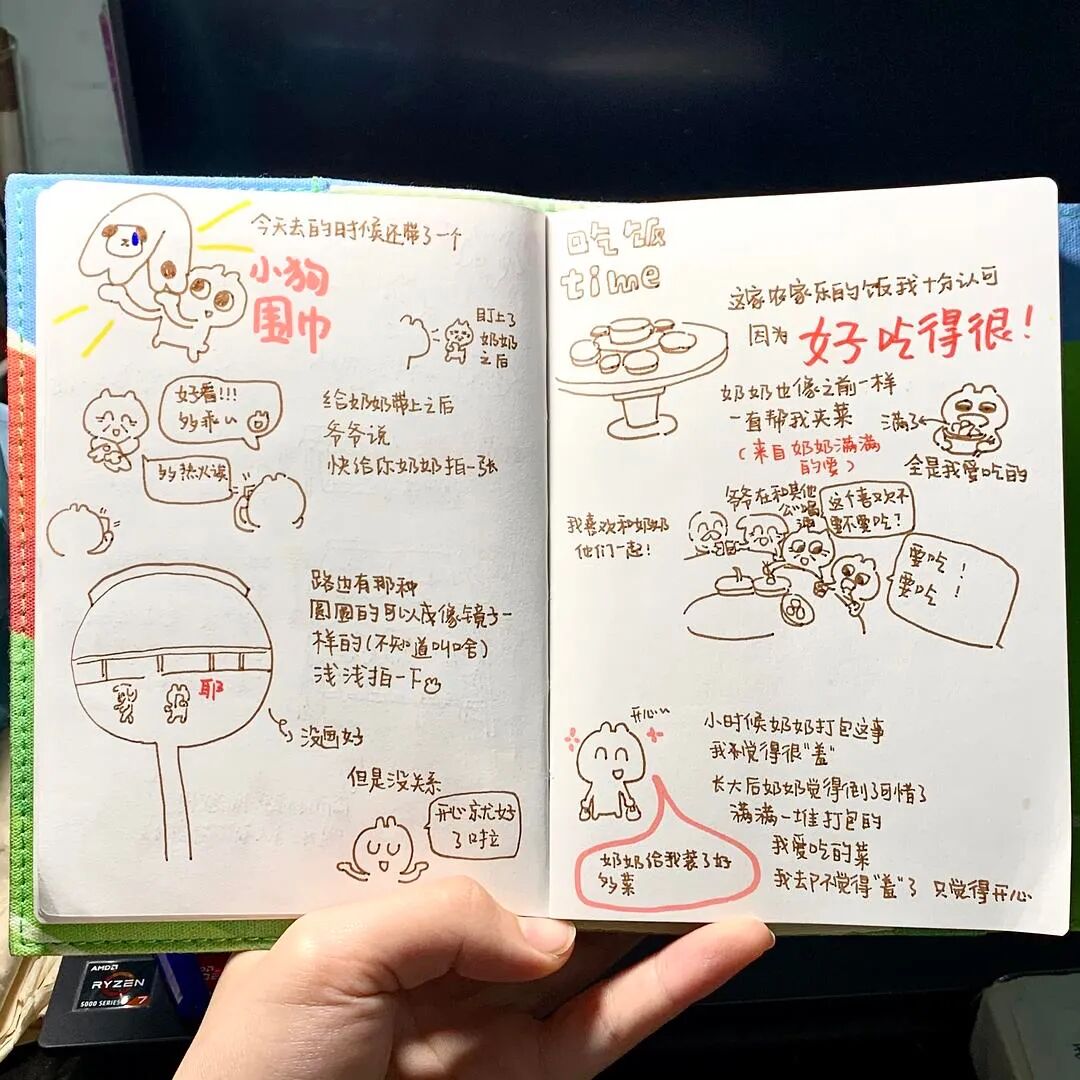 今天去的时候还带了一个
小狗
围巾
盯上了
奶奶
之后
好看!!!
多乖
给奶奶带上之后
爷爷说
快给你奶奶拍一张
多热火诶
路边有那种
圆圆的可以成像镜子一
样的(不知道叫啥)
浅浅拍一下
耶
没画好
但是没关系
开心就好
了啦
吃饭
time
这家农家乐的饭我十分认可
因为 好吃得很!
奶奶也像之前一样
一直帮我夹菜
(来自奶奶满满
的爱)
满了
全是我爱吃的
我喜欢和奶奶
他们一起!
爷爷在和其他
公喝
酒
这个喜欢不
要不要吃?
要吃!
要吃!
开心
小时候奶奶打包这事
我觉得很"羞"
长大后奶奶觉得倒了可惜了
满满一堆打包的
我爱吃的菜
我却不觉得"羞"了 只觉得开心
奶奶给我装了好
多菜
AMD
RYZEN
5000 SERIES 7